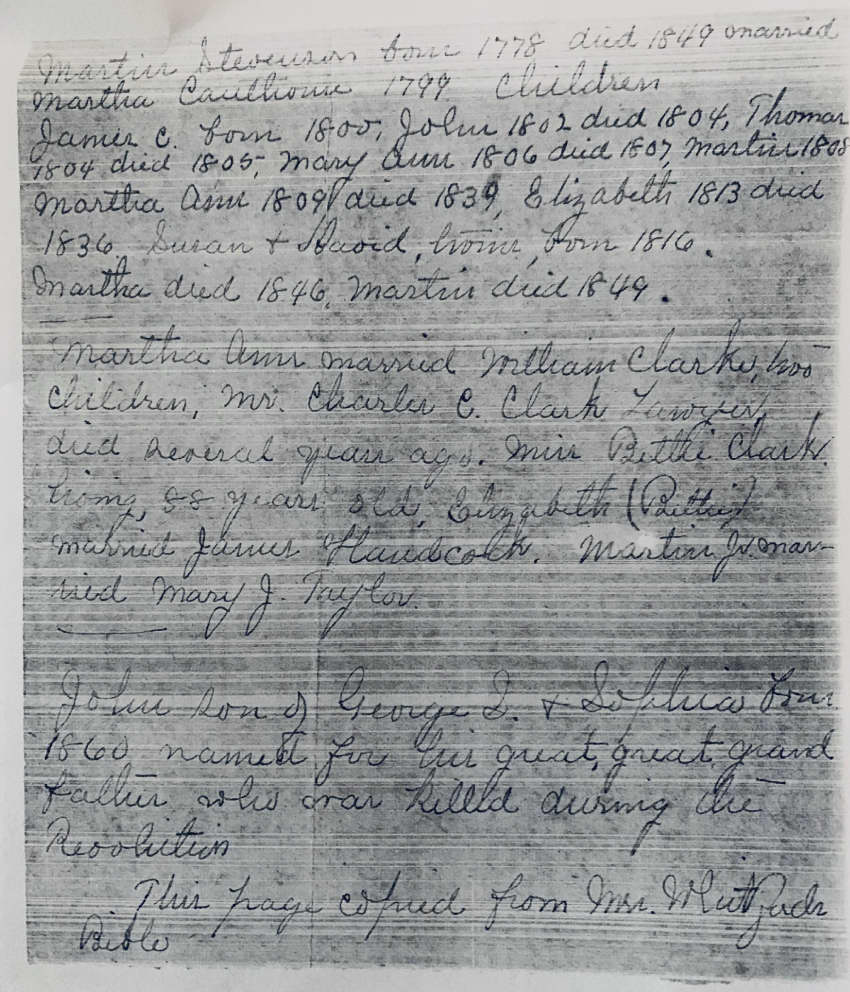 Martin Stevenson born 1778 died 1849 married
Martha Caulthorne 1799 Children
James C. born 1800, John 1802 died 1804, Thomas
1804 died 1805, Mary Ann 1806 died 1807, Martin 1808
Martha Ann 1809 died 1839, Elizabeth 1813 died
1836 Susan & David, twins, born 1816.
Martha died 1846, Martin died 1849.
Martha Ann married William Clark, two
Children, Mr. Charles C. Clark Lawyer,
died several years ago. Miss Bettie Clark
living, 88 years old, Elizabeth (Bettie)
married James Handcock. Martin Jr. mar-
ried Mary J. Taylor.
John son of George S. & Sophia born
1860 named for his great, great, grand
father who was killed during the
Revolution
This page copied from Mrs. Whitfords
Bible